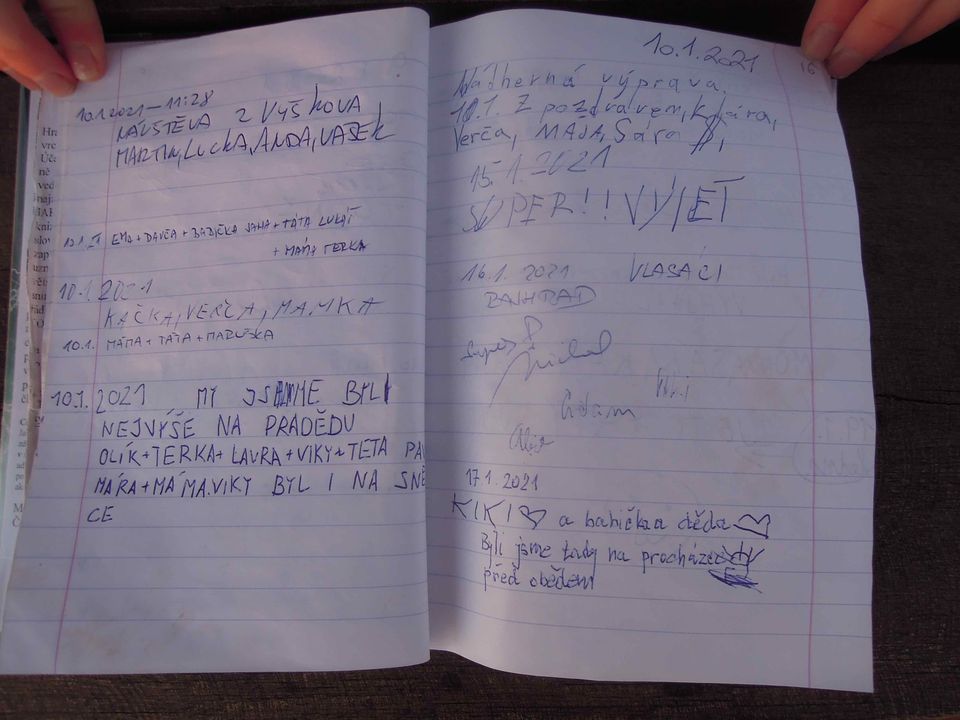 10.1.2021 - 11:28
NÁVŠTĚVA Z VYŠKOVA
MARTIN, LUCKA, ANDA, VAŠEK
EMA + DAVČA + BABIČKA JANA + TÁTA LUKÁŠ
+ MÁMA TERKA
10.1.2021
KAČKA, VERČA, MAMKA
10.1. MÁMA + TÁTA + MARUŠKA
10.1. 2021 MY JSME BYLI
NEJVÝŠE NA PRADĚDU
OLÍK+TERKA+LAURA+VIKY+TETA
MÁRA+MÁMA.VIKY BYL I NA SNĚ
CE
10.1.2021
16
Nádherná výprava.
10.1. Z pozdravem, Klára,
Verča, MÁJA, Sára
15.1.2021
SUPER!! VÝLET
16.1.2021 VLASÁČI
Michal
Adam
17.1.2021
KIKI a babička a děda
Byli jsme tady na procházce
před obědem